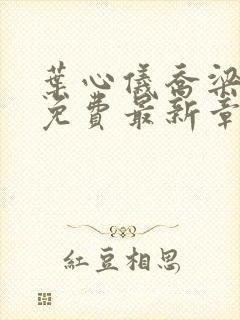 葉心儀喬梁
免費最新章
紅豆相思